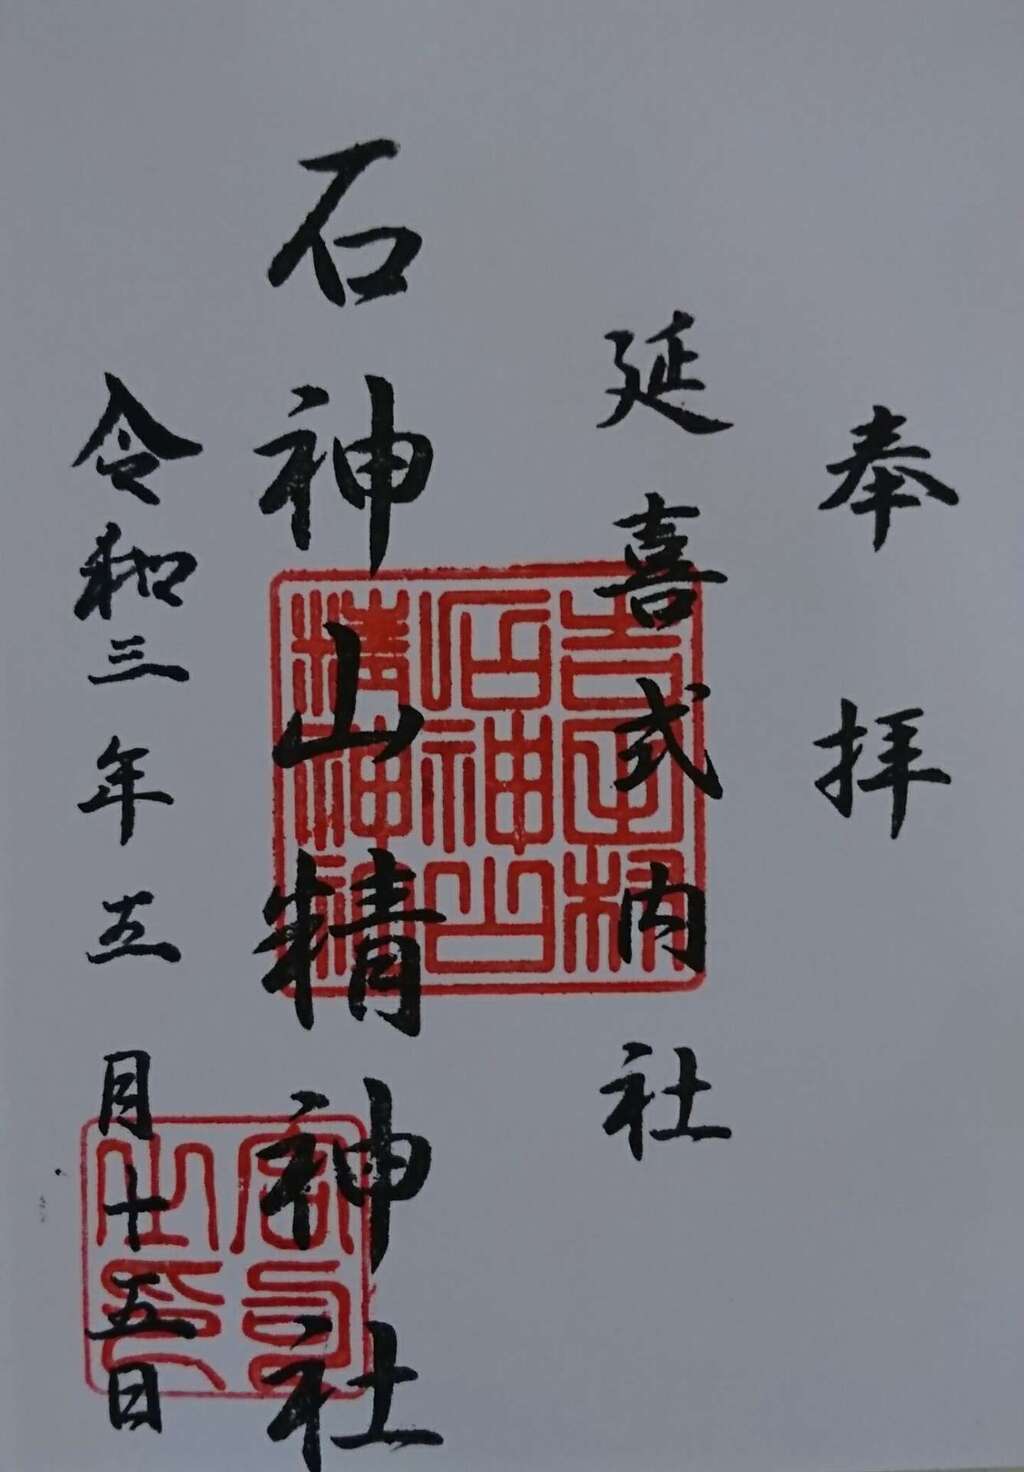 奉拝
延喜式内社
石神山精神社
令和三年五月十五日
吉田村
石神山
精神社
宮司
之印